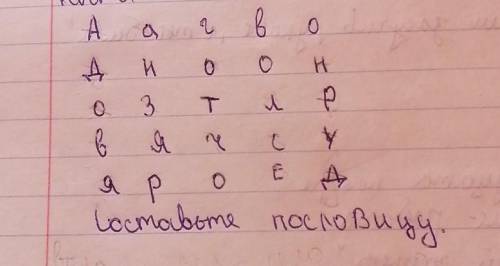 А а г в о
Д н о о н
о з т л р
в я ч с у
я р о Е Д
Составьте пословицу.